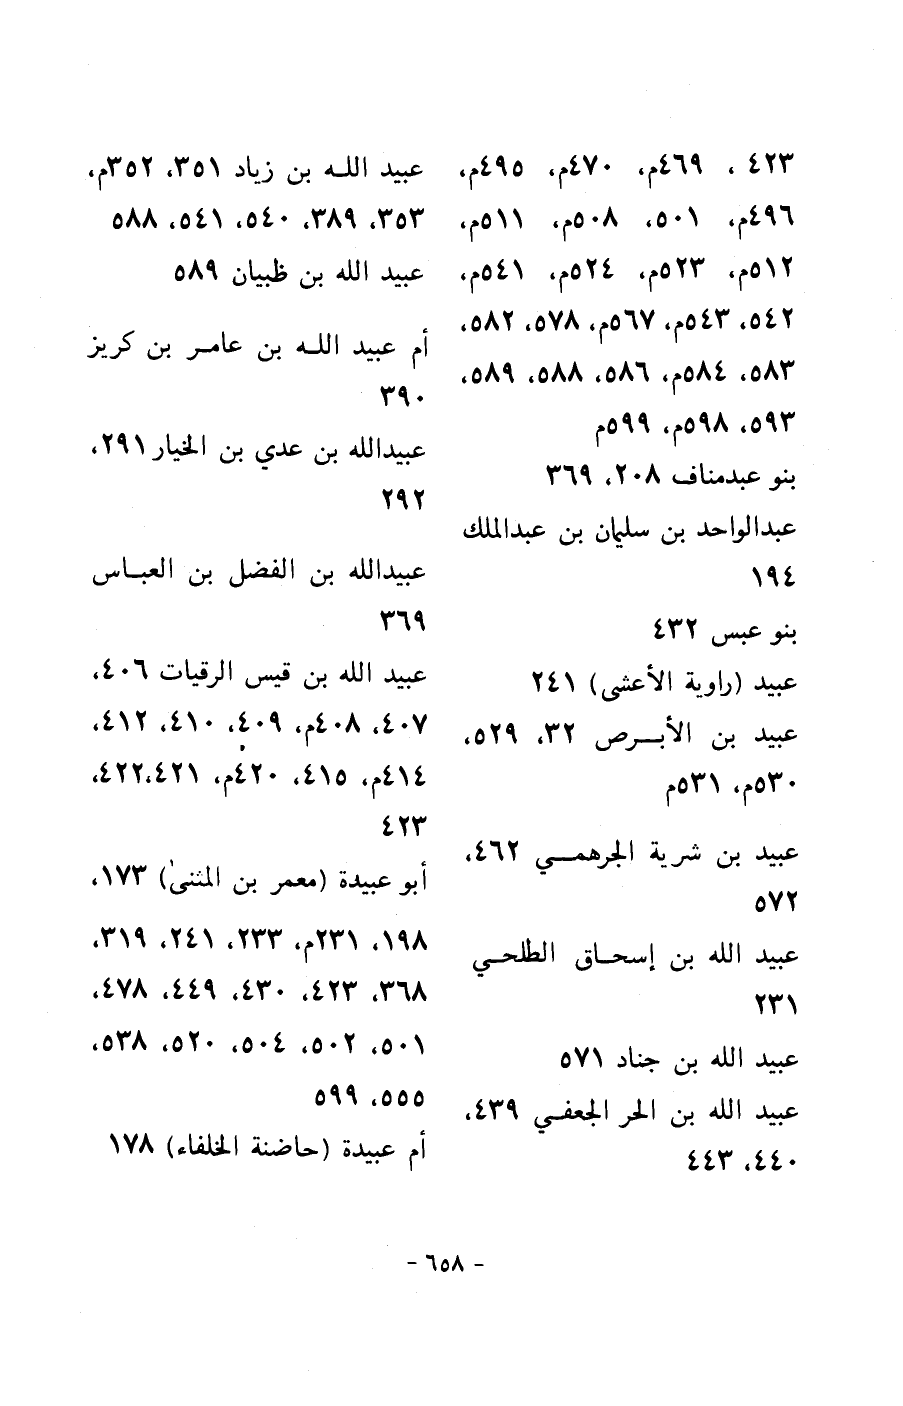 ٤٢٣ ، ٤٦٩م، ٤٧٠م، ٤٩٥م،
٤٩٦م، ٥٠١، ٥٠٨م، ٥١١م،
٥١٢م، ٥٢٣م، ٥٢٤م، ٥٤١م،
٥٤٢، ٥٤٣م، ٥٦٧م، ٥٧٨، ٥٨٢،
٥٨٣، ٥٨٤م، ٥٨٦، ٥٨٨، ٥٨٩،
٥٩٣، ٥٩٨م، ٥٩٩م
بنو عبدمناف ٢٠٨، ٣٦٩
عبدالواحد بن سليمان بن عبدالملك
١٩٤
بنو عبس ٤٣٢
عبيد (راوية الأعشى) ٢٤١
عبيد بن الأبرص ٣٢، ٥٢٩،
٥٣٠م، ٥٣١م
عبيد بن شرية الجرهمي ٤٦٢،
٥٧٢
عبيد الله بن إسحاق الطلحي
٢٣١
عبيد الله بن جناد ٥٧١
عبيد الله بن الحر الجعفي ٤٣٩،
٤٤٠، ٤٤٣
عبيد الله بن زياد ٣٥١، ٣٥٢م،
٣٥٣، ٣٨٩، ٥٤٠، ٥٤١، ٥٨٨
عبيد الله بن ظبيان ٥٨٩
أم عبيد الله بن عامر بن كريز
٣٩٠
عبيدالله بن عدي بن الخيار ٢٩١،
٢٩٢
عبيدالله بن الفضل بن العباس
٣٦٩
عبيد الله بن قيس الرقيات ٤٠٦،
٤٠٧، ٤٠٨م، ٤٠٩، ٤١٠، ٤١٢،
٤١٤م، ٤١٥، ٤٢٠م، ٤٢١،٤٢٢،
٤٢٣
أبو عبيدة (معمر بن المثنىٰ) ١٧٣،
١٩٨، ٢٣١م، ٢٣٣، ٢٤١، ٣١٩،
٣٦٨، ٤٢٣، ٤٣٠، ٤٤٩، ٤٧٨،
٥٠١، ٥٠٢، ٥٠٤، ٥٢٠، ٥٣٨،
٥٥٥، ٥٩٩
أم عبيدة (حاضنة الخلفاء) ١٧٨
- ٦٥٨ -